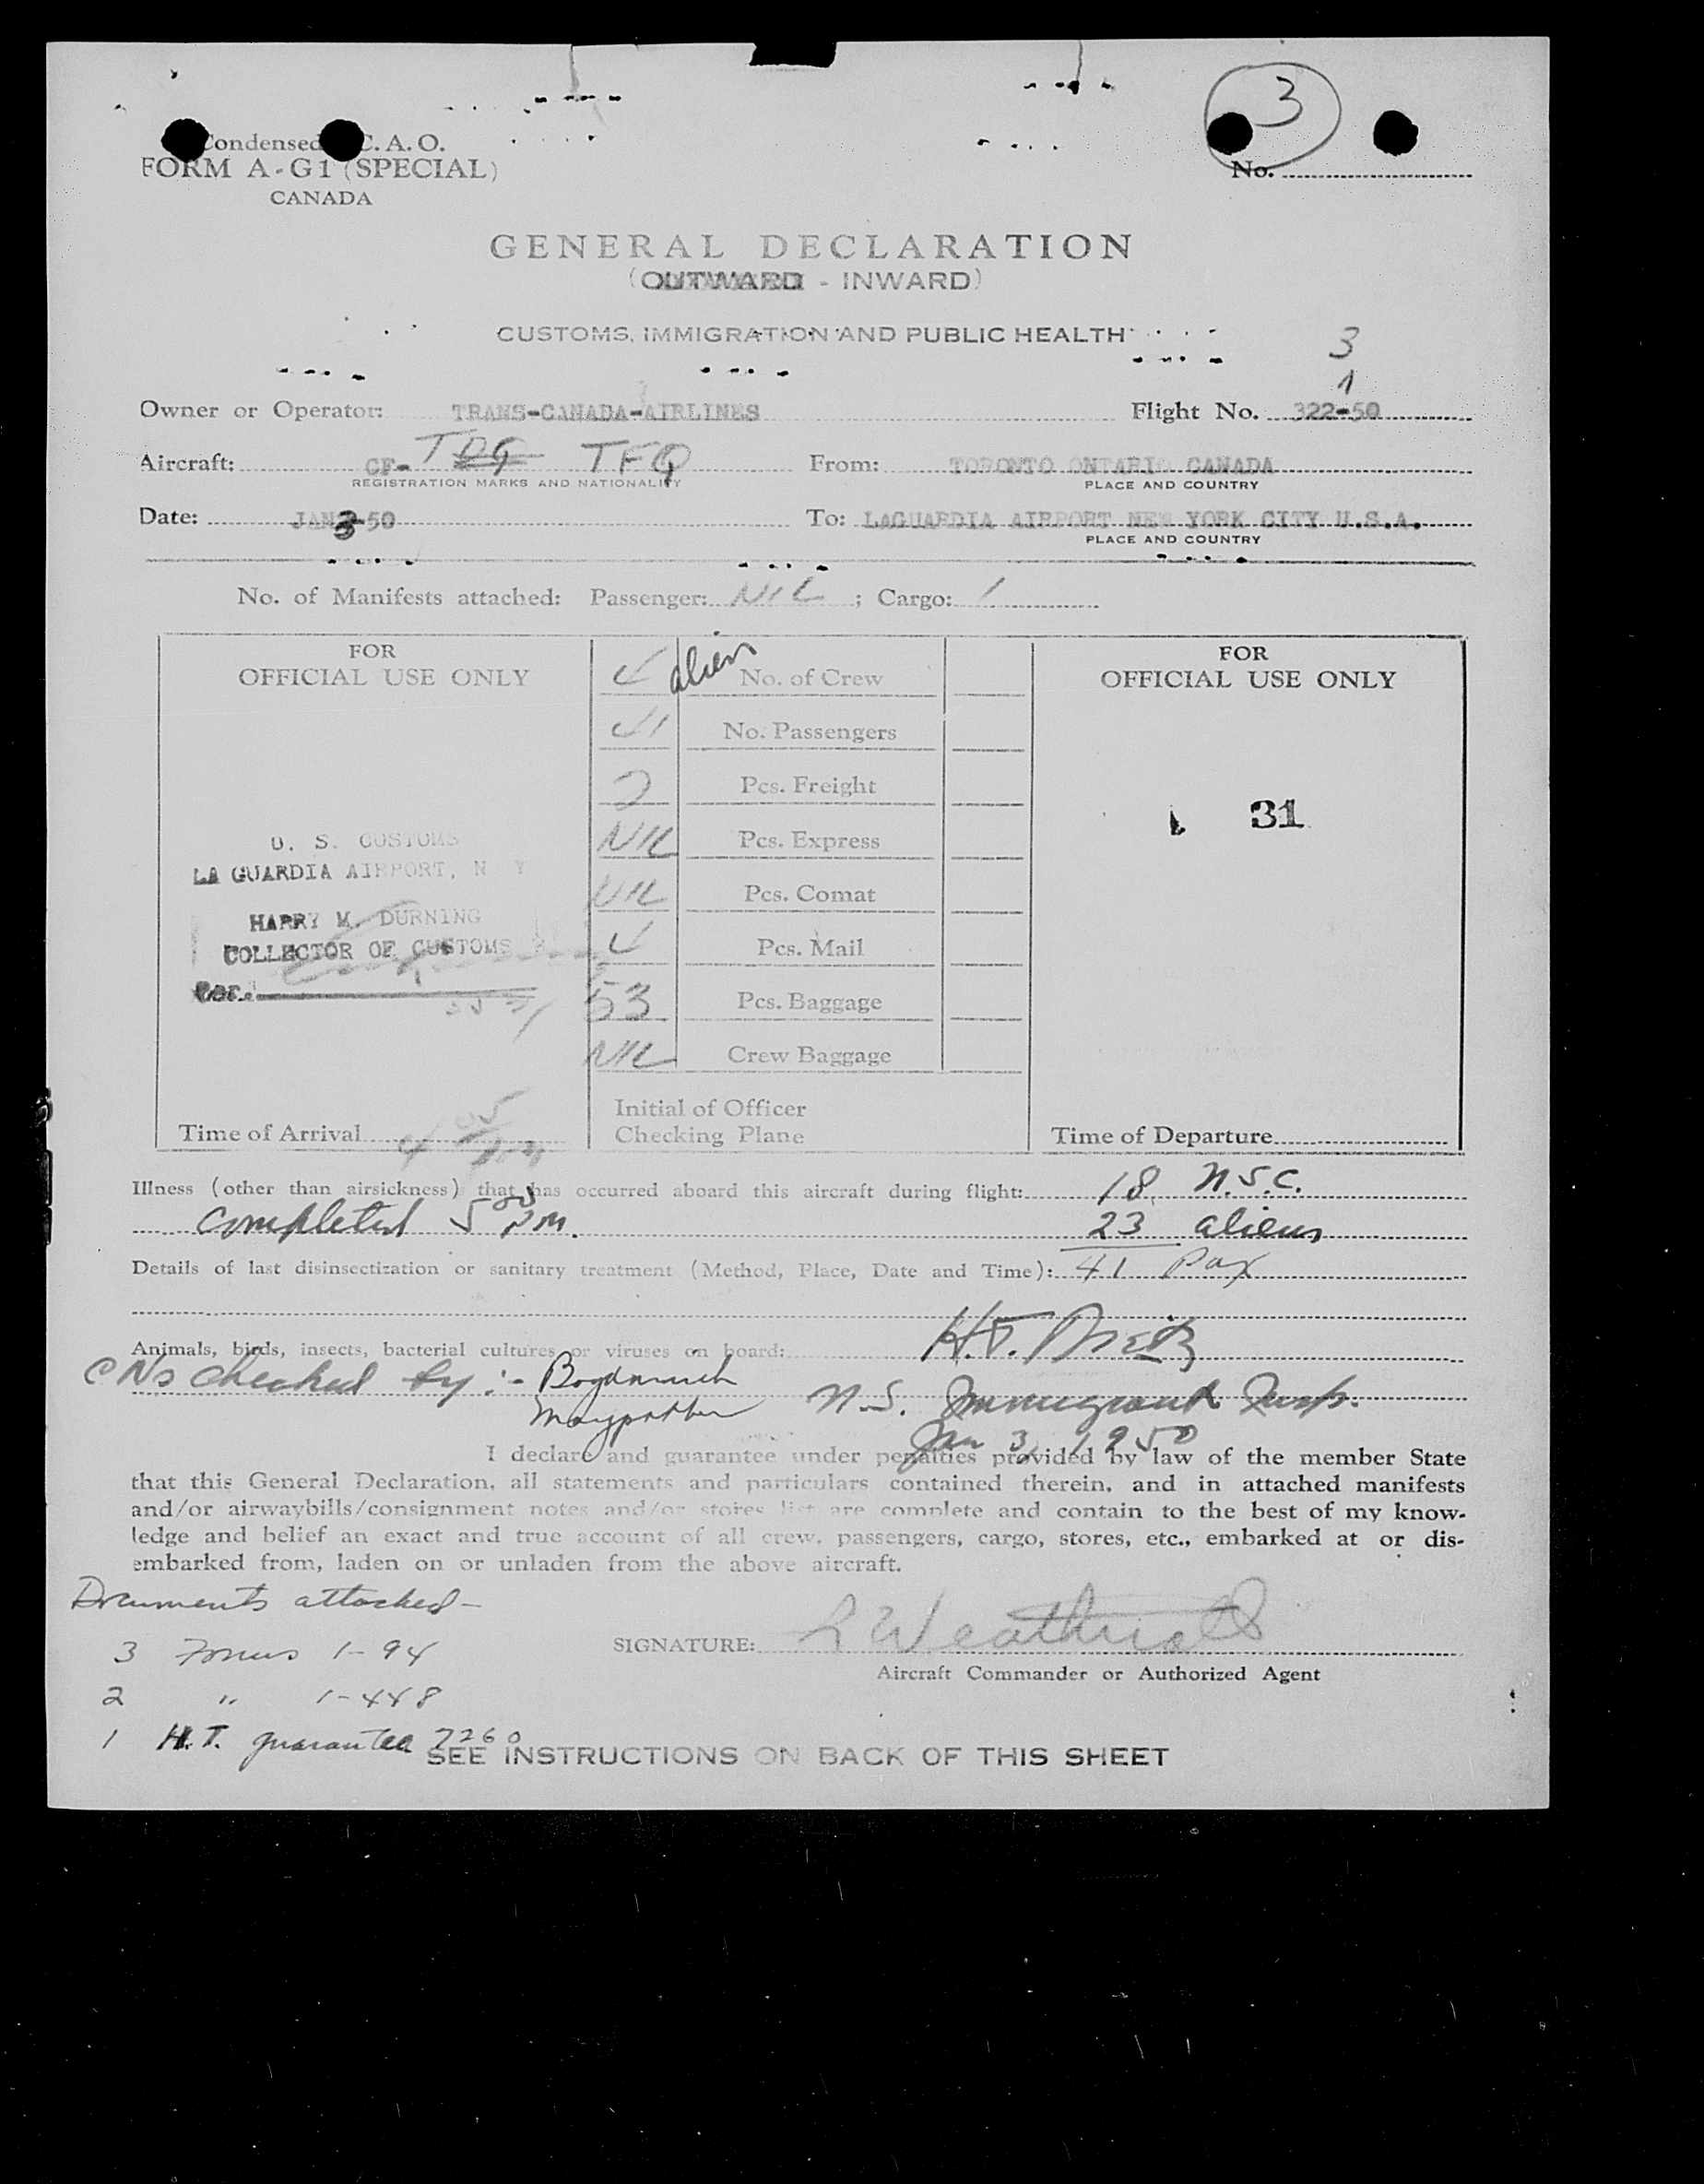 3
Condensed C. A. O.
FORM A-G1 (SPECIAL)
CANADA
No.
GENERAL DECLARATION
(OUTWARD - INWARD)
CUSTOMS, IMMIGRATION AND PUBLIC HEALTH
3
1
Owner or Operator: TRANS-CANADA-AIRLINES Flight No. 322-50
Aircraft: CF- TFQ From: TORONTO ONTARIO CANADA
REGISTRATION MARKS AND NATIONALITY PLACE AND COUNTRY
Date: JAN 3-50 To: LAGUARDIA AIRPORT NEW YORK CITY U.S.A.
PLACE AND COUNTRY
No. of Manifests attached: Passenger: NIL ; Cargo: 1
FOR
OFFICIAL USE ONLY
U. S. CUSTOMS
LA GUARDIA AIRPORT, N Y
HARRY M. DURNING
COLLECTOR OF CUSTOMS
Per.
Time of Arrival
4 aliens No. of Crew
41 No. Passengers
2 Pcs. Freight
NIL Pcs. Express
NIL Pcs. Comat
4 Pcs. Mail
53 Pcs. Baggage
NIL Crew Baggage
Initial of Officer
Checking Plane
FOR
OFFICIAL USE ONLY
31
Time of Departure
Illness (other than airsickness) that has occurred aboard this aircraft during flight: 18 U.S.C.
completed 5 PM. 23 aliens
Details of last disinsectization or sanitary treatment (Method, Place, Date and Time): 41 Pax
Animals, birds, insects, bacterial cultures or viruses on board:
checked by:-
U.S. Immigrant Insp.
Jan 3, 1950
I declare and guarantee under penalties provided by law of the member State
that this General Declaration, all statements and particulars contained therein, and in attached manifests
and/or airwaybills/consignment notes and/or stores list are complete and contain to the best of my know-
ledge and belief an exact and true account of all crew, passengers, cargo, stores, etc., embarked at or dis-
embarked from, laden on or unladen from the above aircraft.
Documents attached-
3 Forms I-94
2 " I-448
1 H.T. guarantee 7260
SIGNATURE:
Aircraft Commander or Authorized Agent
SEE INSTRUCTIONS ON BACK OF THIS SHEET